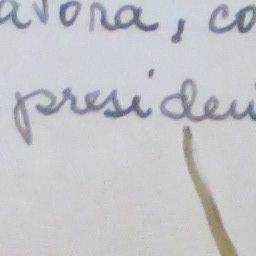 avora, co
presiden